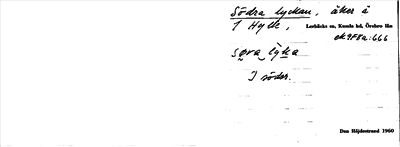 Södra lyckan, åker å
1 Hytt, Lerbäcks sn, Kumla hd, Örebro län
ek 9F8a:666
søra lyka
I söder.
Dan Höjdestrand 1960